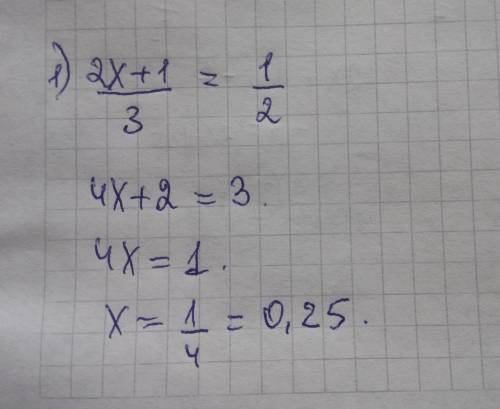 1) (2x+1)/3 = 1/2
4x+2 = 3.
4x = 1.
x = 1/4 = 0,25.